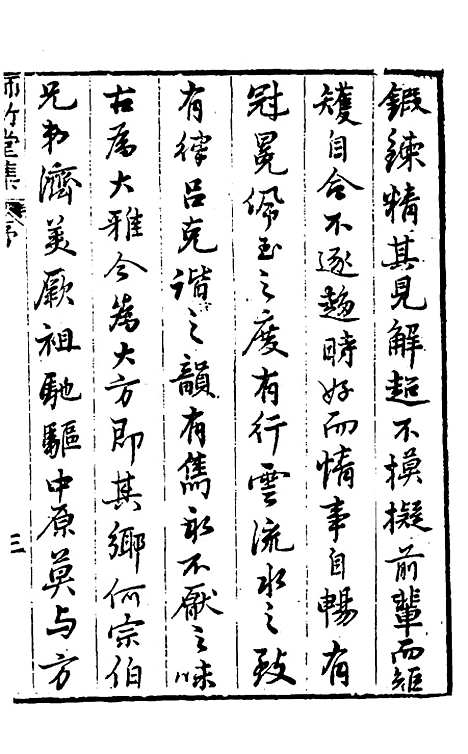 鍛鍊精其見解超不摸擬前輩而矩
矱自合不逐趨時好而情事自暢有
冠冕佩玉之度有行雲流水之致
有律呂克諧之韻有雋永不厭之味
古為大雅今為大方即其鄉何宗伯
兄弟濟美厥祖馳驅中原莫与方
竹堂集 序
三